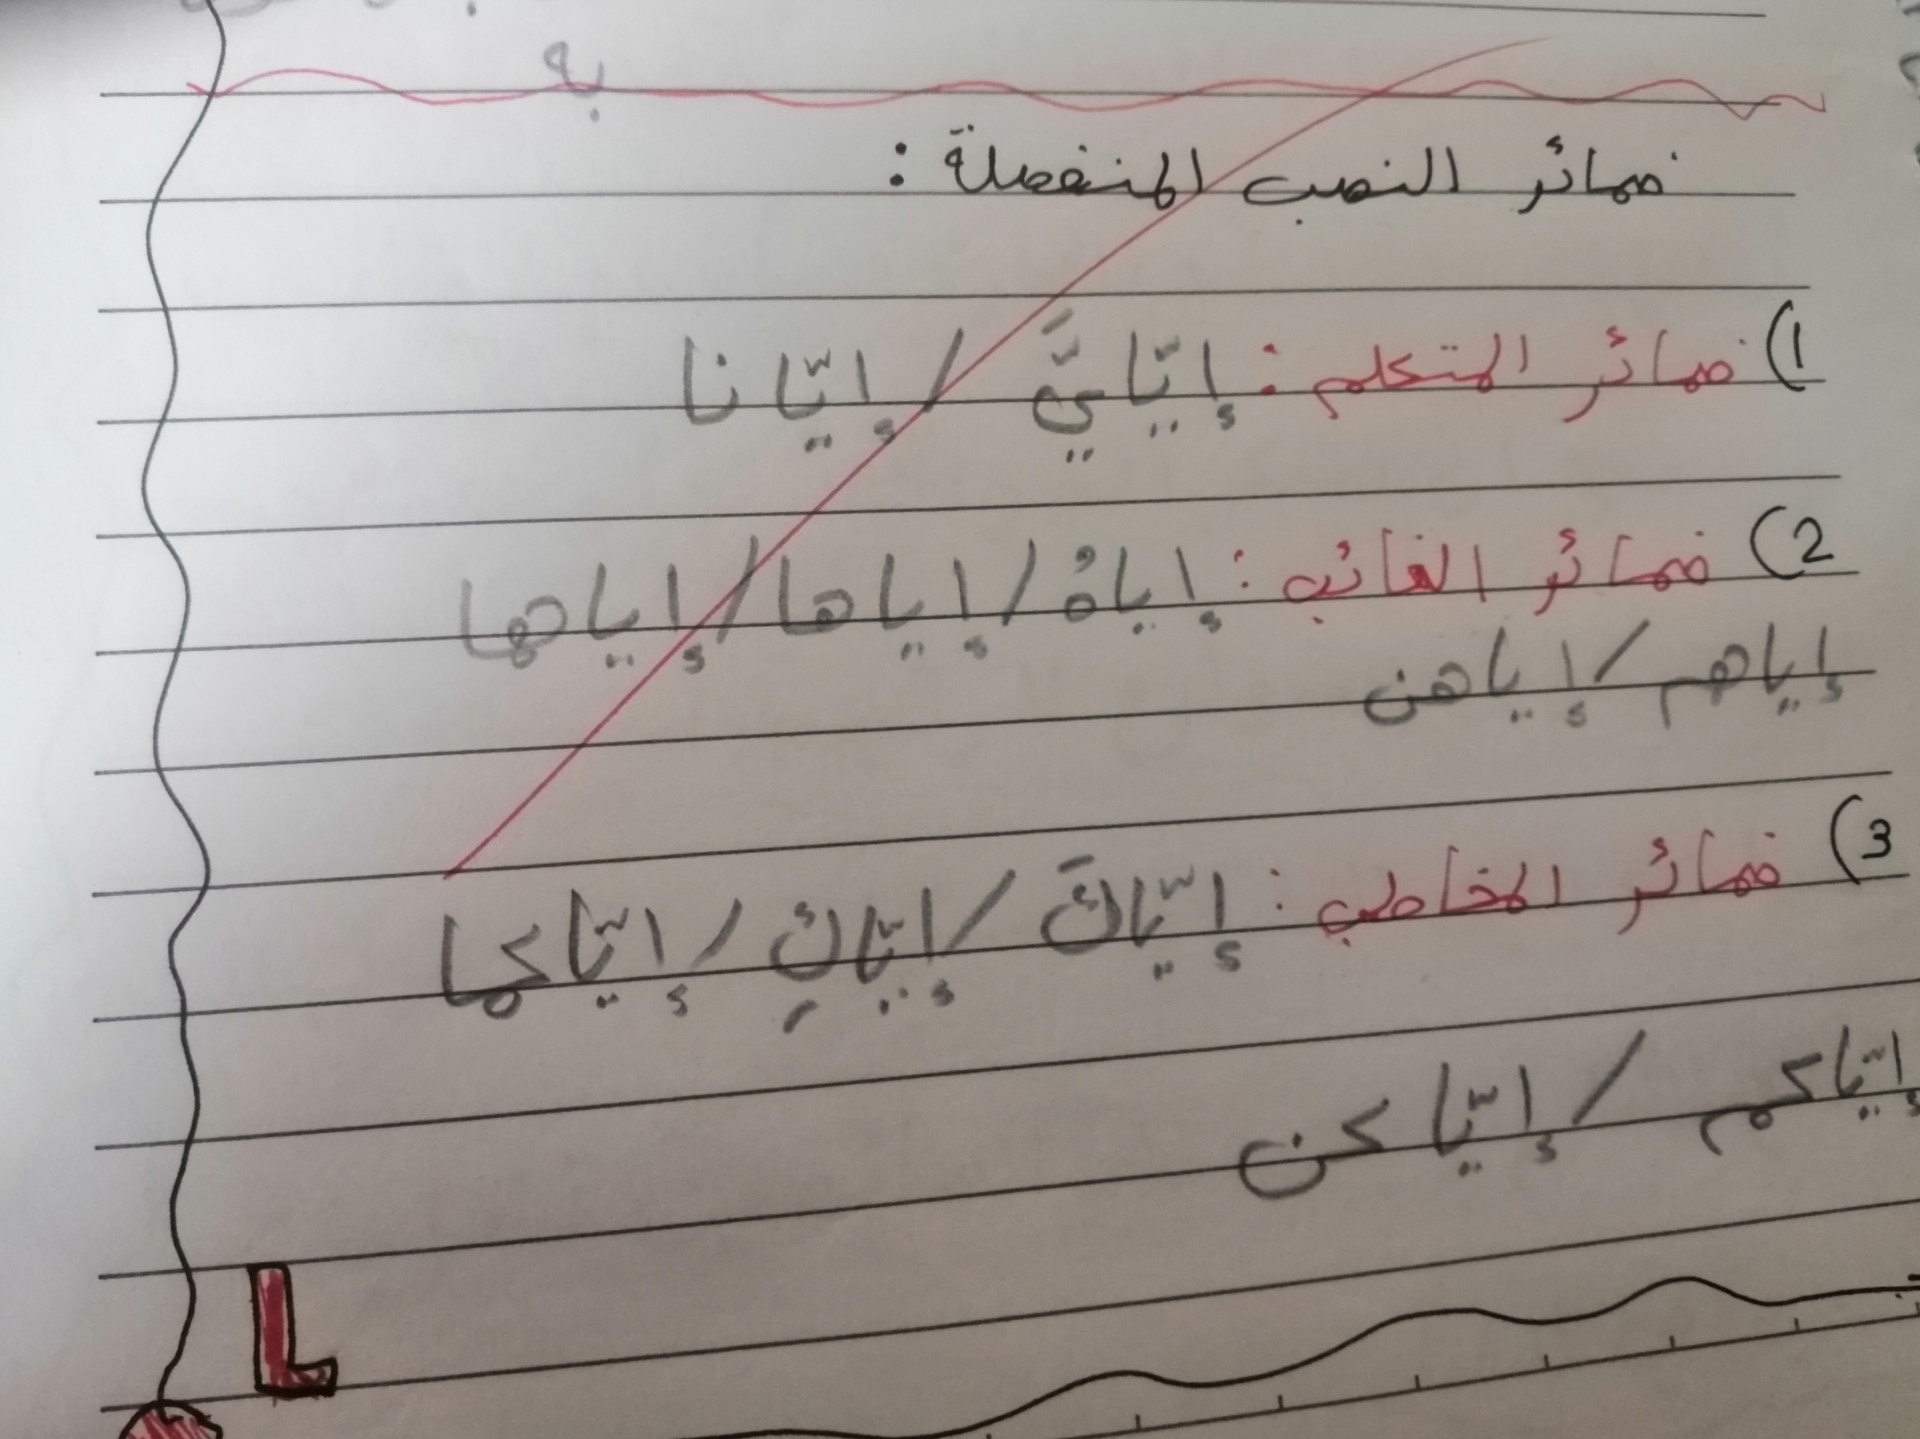 به
ضمائر النصب المنفصلة :
1) ضمائر المتكلم : إيّايَّ / إيّانا
2) ضمائر الغائب : إياهُ / إياها / إياهما
إياهم / إياهن
3) ضمائر المخاطب : إيّاكَ / إيّاكِ / إيّاكما
إيّاكم / إيّاكن
L